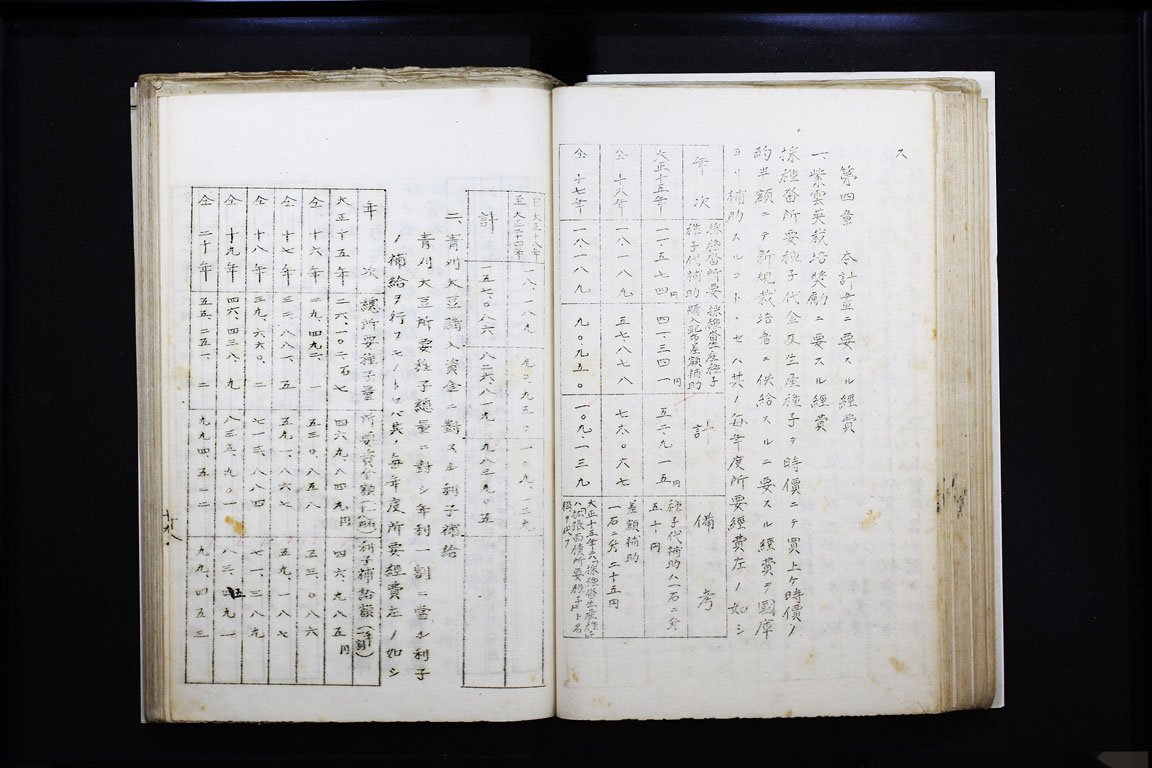 ス
第四章 本計畫ニ要スル經費
一、紫雲英栽培奬勵ニ要スル經費
採種畓所要種子代金及生産種子ヲ時價ニテ買上ケ時價ノ
約半額ニテ新規栽培者ニ供給スルニ要スル經費ヲ國庫
ヨリ補助スルコトヽセハ其ノ每年度所要經費左ノ如シ
年次 採種畓所要種子代補助 採種畓生産種子購入配布差額補助 計 備考
大正十五年 一一、五七四円 四一、三四一円 五二、九一五円 種子代補助ハ一石ニ付五十円
仝十六年 一八一八九 五七八七八 七六〇六七 差額補助一石ニ付二十五円
仝十七年 一八一八九 九〇、九五〇 一〇九、一三九 大正十五年ハ「採種畓生産種子」ハ「拡張面積所要種子」ト名稱ヲ代フ
自大正十八年至大正二十四年 一八、一八九 九〇、九五〇 一〇九、一三九
計 一五七、〇八六、 八二六、八一九、 九八三九〇五
二、青刈大豆購入資金ニ對スル利子補給
青刈大豆所要種子總量ニ對シ年利一割ニ當ル利子
ノ補給ヲ行フモノトセハ其ノ每年度所要經費左ノ如シ
年次 總所要種子量 所要資金額 利子補給額(年一割)
大正十五年 二六、一〇二石七 四六九八四九円 四六、九八五円
仝十六年 二九、四九二、一 五三〇、八五八 五三、〇八六
仝十七年 三二、八八一、五 五九一、八六七 五九、一八七
仝十八年 三九、六六〇、二 七一三、八八四 七一、三八九
仝十九年 四六、四三八、九 八三五、九〇一 八三、五九一
仝二十年 五五、二五一、二 九九四五一二 九九、四五三